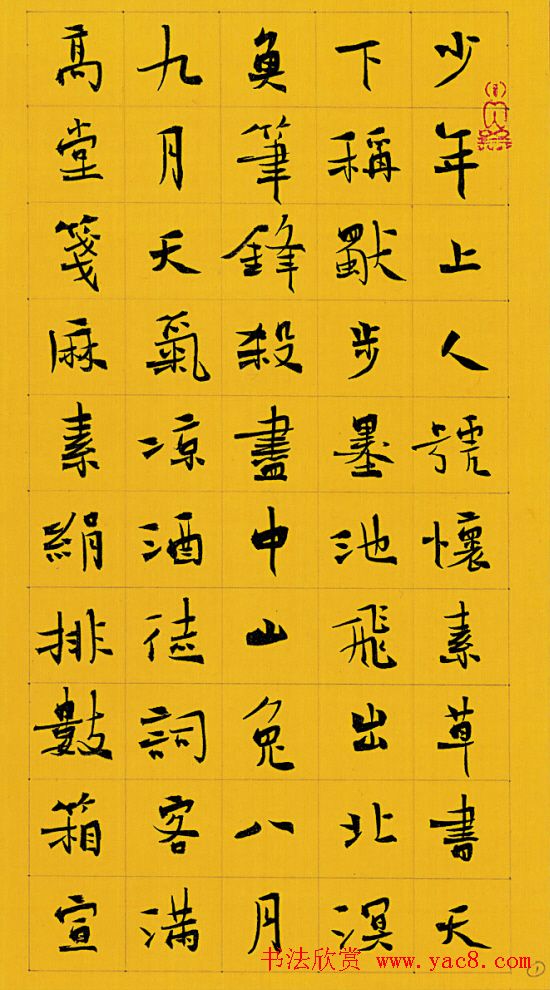 少年上人號懷素草書天
下稱獨步墨池飛出北溟
魚筆鋒殺盡中山兔八月
九月天氣涼酒徒詞客滿
高堂箋麻素絹排數箱宣
书法欣赏 www.yac8.com